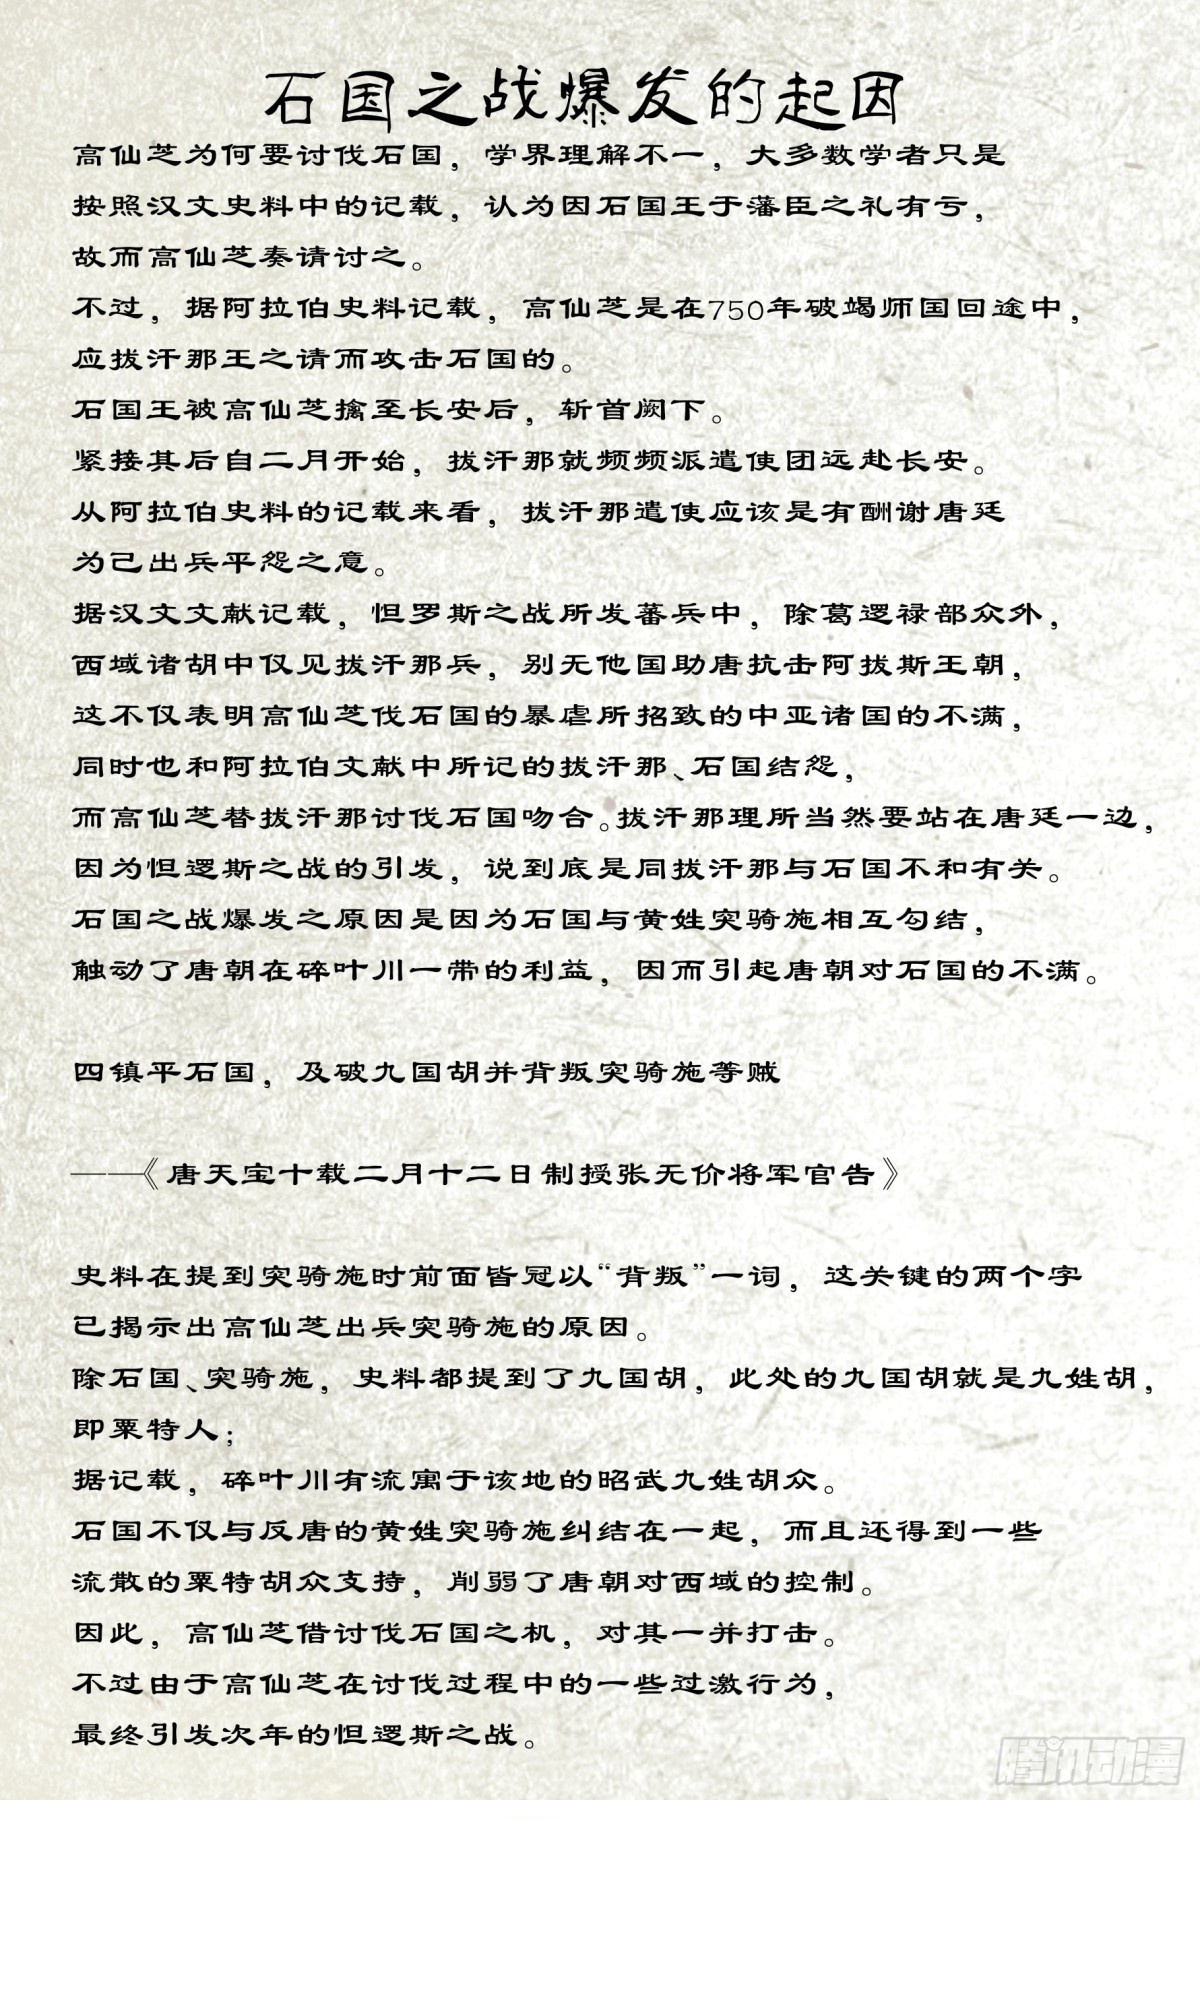 石国之战爆发的起因
高仙芝为何要讨伐石国，学界理解不一，大多数学者只是
按照汉文史料中的记载，认为因石国王于藩臣之礼有亏，
故而高仙芝奏请讨之。
不过，据阿拉伯史料记载，高仙芝是在750年破竭师国回途中，
应拔汗那王之请而攻击石国的。
石国王被高仙芝擒至长安后，斩首阙下。
紧接其后自二月开始，拔汗那就频频派遣使团远赴长安。
从阿拉伯史料的记载来看，拔汗那遣使应该是有酬谢唐廷
为己出兵平怨之意。
据汉文文献记载，怛罗斯之战所发蕃兵中，除葛逻禄部众外，
西域诸胡中仅见拔汗那兵，别无他国助唐抗击阿拔斯王朝，
这不仅表明高仙芝伐石国的暴虐所招致的中亚诸国的不满，
同时也和阿拉伯文献中所记的拔汗那、石国结怨，
而高仙芝替拔汗那讨伐石国吻合。拔汗那理所当然要站在唐廷一边，
因为怛逻斯之战的引发，说到底是同拔汗那与石国不和有关。
石国之战爆发之原因是因为石国与黄姓突骑施相互勾结，
触动了唐朝在碎叶川一带的利益，因而引起唐朝对石国的不满。
四镇平石国，及破九国胡并背叛突骑施等贼
——《唐天宝十载二月十二日制授张无价将军官告》
史料在提到突骑施时前面皆冠以“背叛”一词，这关键的两个字
已揭示出高仙芝出兵突骑施的原因。
除石国、突骑施，史料都提到了九国胡，此处的九国胡就是九姓胡，
即粟特人；
据记载，碎叶川有流寓于该地的昭武九姓胡众。
石国不仅与反唐的黄姓突骑施纠结在一起，而且还得到一些
流散的粟特胡众支持，削弱了唐朝对西域的控制。
因此，高仙芝借讨伐石国之机，对其一并打击。
不过由于高仙芝在讨伐过程中的一些过激行为，
最终引发次年的怛逻斯之战。
腾讯动漫